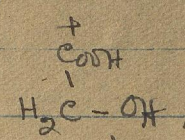 +
COOH
H₂C - OH